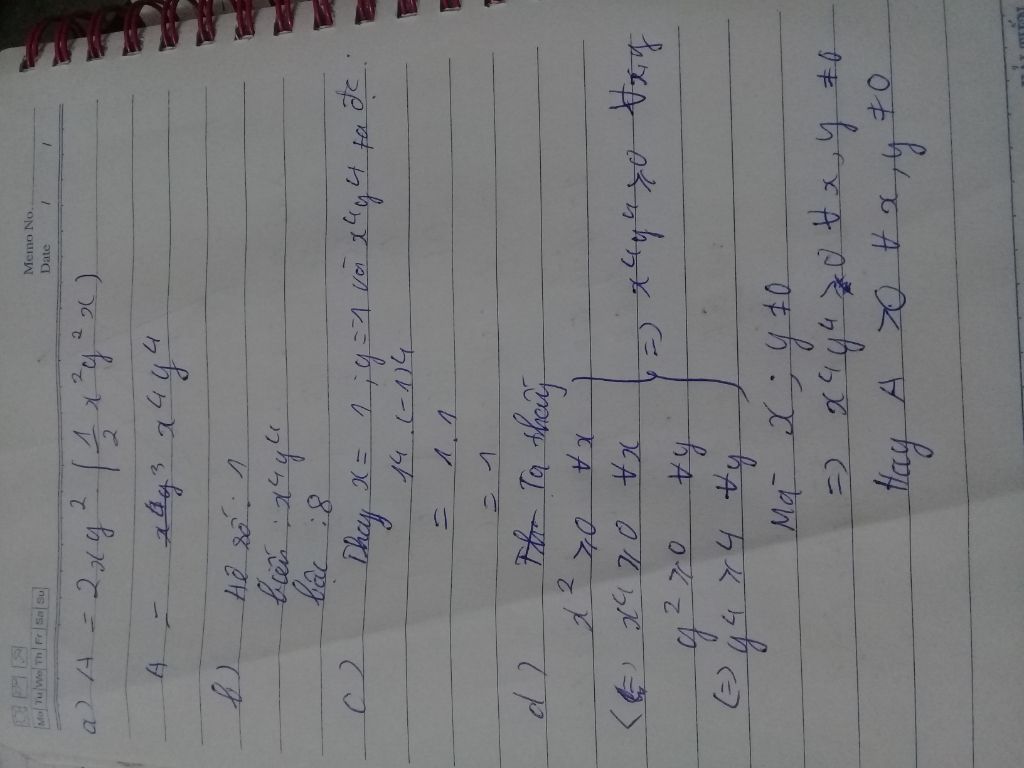 Memo No.
Mo Tu We Th Fr Sa Su
Date / /
a) A = 2xy² (1/2 x²y²x)
A = x⁴y⁴
b) Hệ số: 1
biến: x⁴y⁴
bậc: 8
c) Thay x = 1; y = -1 vào x⁴y⁴ ta đc:
1⁴.(-1)⁴
= 1.1
= 1
d) Ta thấy
x² ≥ 0 ∀x
(=) x⁴ ≥ 0 ∀x
y² ≥ 0 ∀y
(=) y⁴ ≥ y ∀y
=) x⁴y⁴ ≥ 0 ∀x,y
Mà x; y ≠ 0
=) x⁴y⁴ > 0 ∀x, y ≠ 0
Hay A > 0 ∀x, y ≠ 0